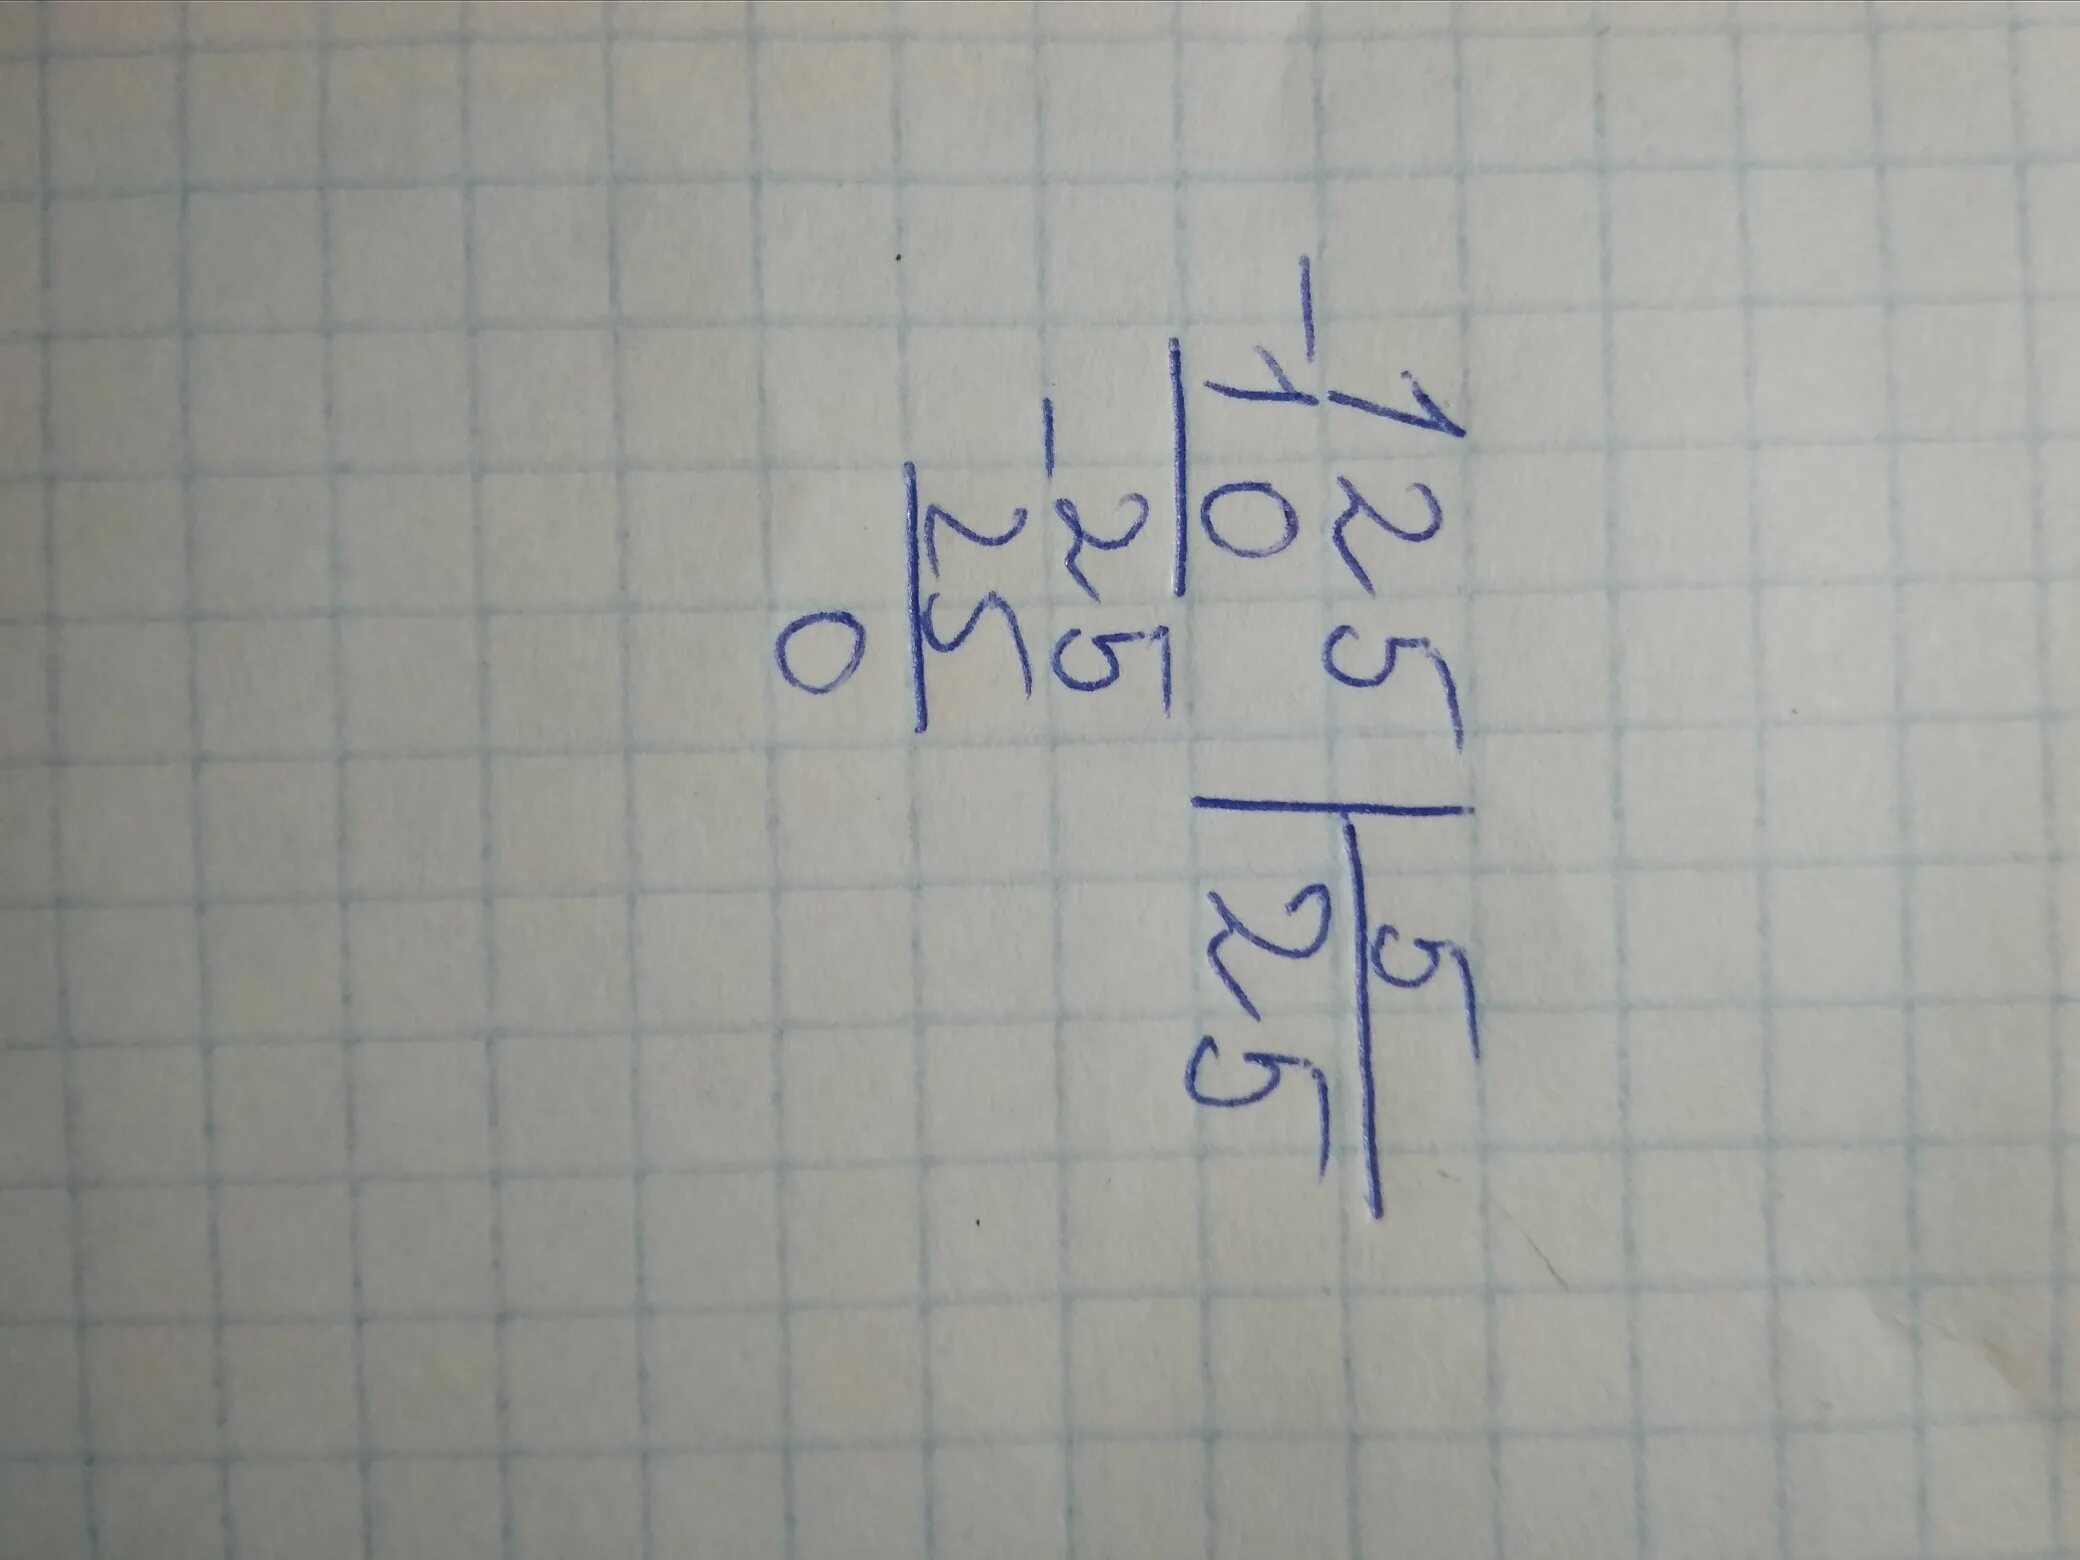 125 | 5
- 10 | 25
- 25
25
0